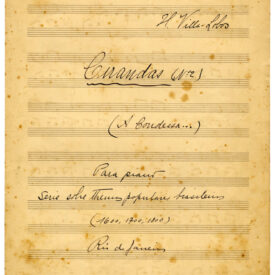 H. Villa-Lobos
Cirandas (Nº2)
(A Condessa...)
Para piano
Serie sobre themas populares brasileiros
(1600, 1700, 1800)
Rio de Janeiro